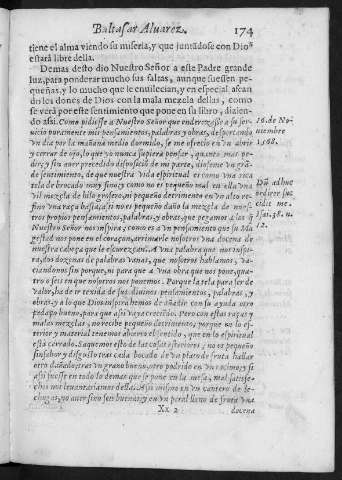 Baltasar Alvarez. 174
tiene el alma viendo su miseria, y que juntãdose con Dioˢ
estarà libre della.
Demas desto dio Nuestro Señor a este Padre grande
luz, para ponderar mucho sus faltas, aunque fuessen pe-
queñas, y lo mucho que le enuilecian, y en especial afean
do los dones de Dios con la mala mezcla dellas, como
se verà por este sentimiento que pone en su libro, dizien-
do assi. Como pidiesse a Nuestro Señor que endereçasse a su ser-
uicio puramente mis pensamientos, palabras y obras, despertando
vn dia por la mañana medio dormido, se me ofrecio en vn abrir
y cerrar de ojo, lo que yo nunca supiera pensar, quanto mas pe-
dir; y sin auer precedido disposiciõ de mi parte, diome vn grã-
de sentimiento, de que nuestra vida espiritual es como vna rica
tela de brocado muy fino; y como no es pequeño mal en ella vna
vil mezcla de hilo grossero, ni pequeño detrimento en vn alto re-
zino vna raça baxa, assi no es pequeño daño la mezcla de nues-
tros propios pensamientos, palabras, y obras, que pegamos a las q̃
Nuestro Señor nos inspira, como es a vn pensamiento que su Ma
gestad nos pone en el coraçon, arrimarle nosotros vna docena de
nuestra cabeça que le escurezcan. A vna palabra que nos inspi-
ra, dos dozenas de palabras vanas, que nosotros hablamos, va-
ciandonos sin porque, ni para a vna obra que nos pone, qua-
tro o seis en que nosotros nos ponemos. Porque la tela para ser de
valor, ha de ir texida de sus diuinos pensamientos, palabras, y
obras, y a lo que Dios inspira hemos de añadir con su ayuda otro
pedaço bueno, para que assi vaya crecido. Pero con estas raças y
malas mezclas, no recibe pequeño detrimento, porque no lo ex-
terior y material tenemos abierto el sentido, que en lo espiritual
està cerrado. Saquemos esto de las cosas exteriores, no es pequeño
sinsabor y disgusto tras cada bocado de vn plato de fruta hallar
otro dañado, tras vn grano bueno, otro podrido en vn racimo; y si
assi fuesse en todo lo demas que se pone en la mesa, mal satisfe-
chos nos leuantariamos della. Assi mismo en vn cantero de le-
chugas, no auer sino seis buenas; y en vn peral lleno de fruta vna
Xx 2 docena
16. de No-
uiembre
1568.
Dũ adhuc
ordirer suc
cidit me.
Isai. 38. n.
12.